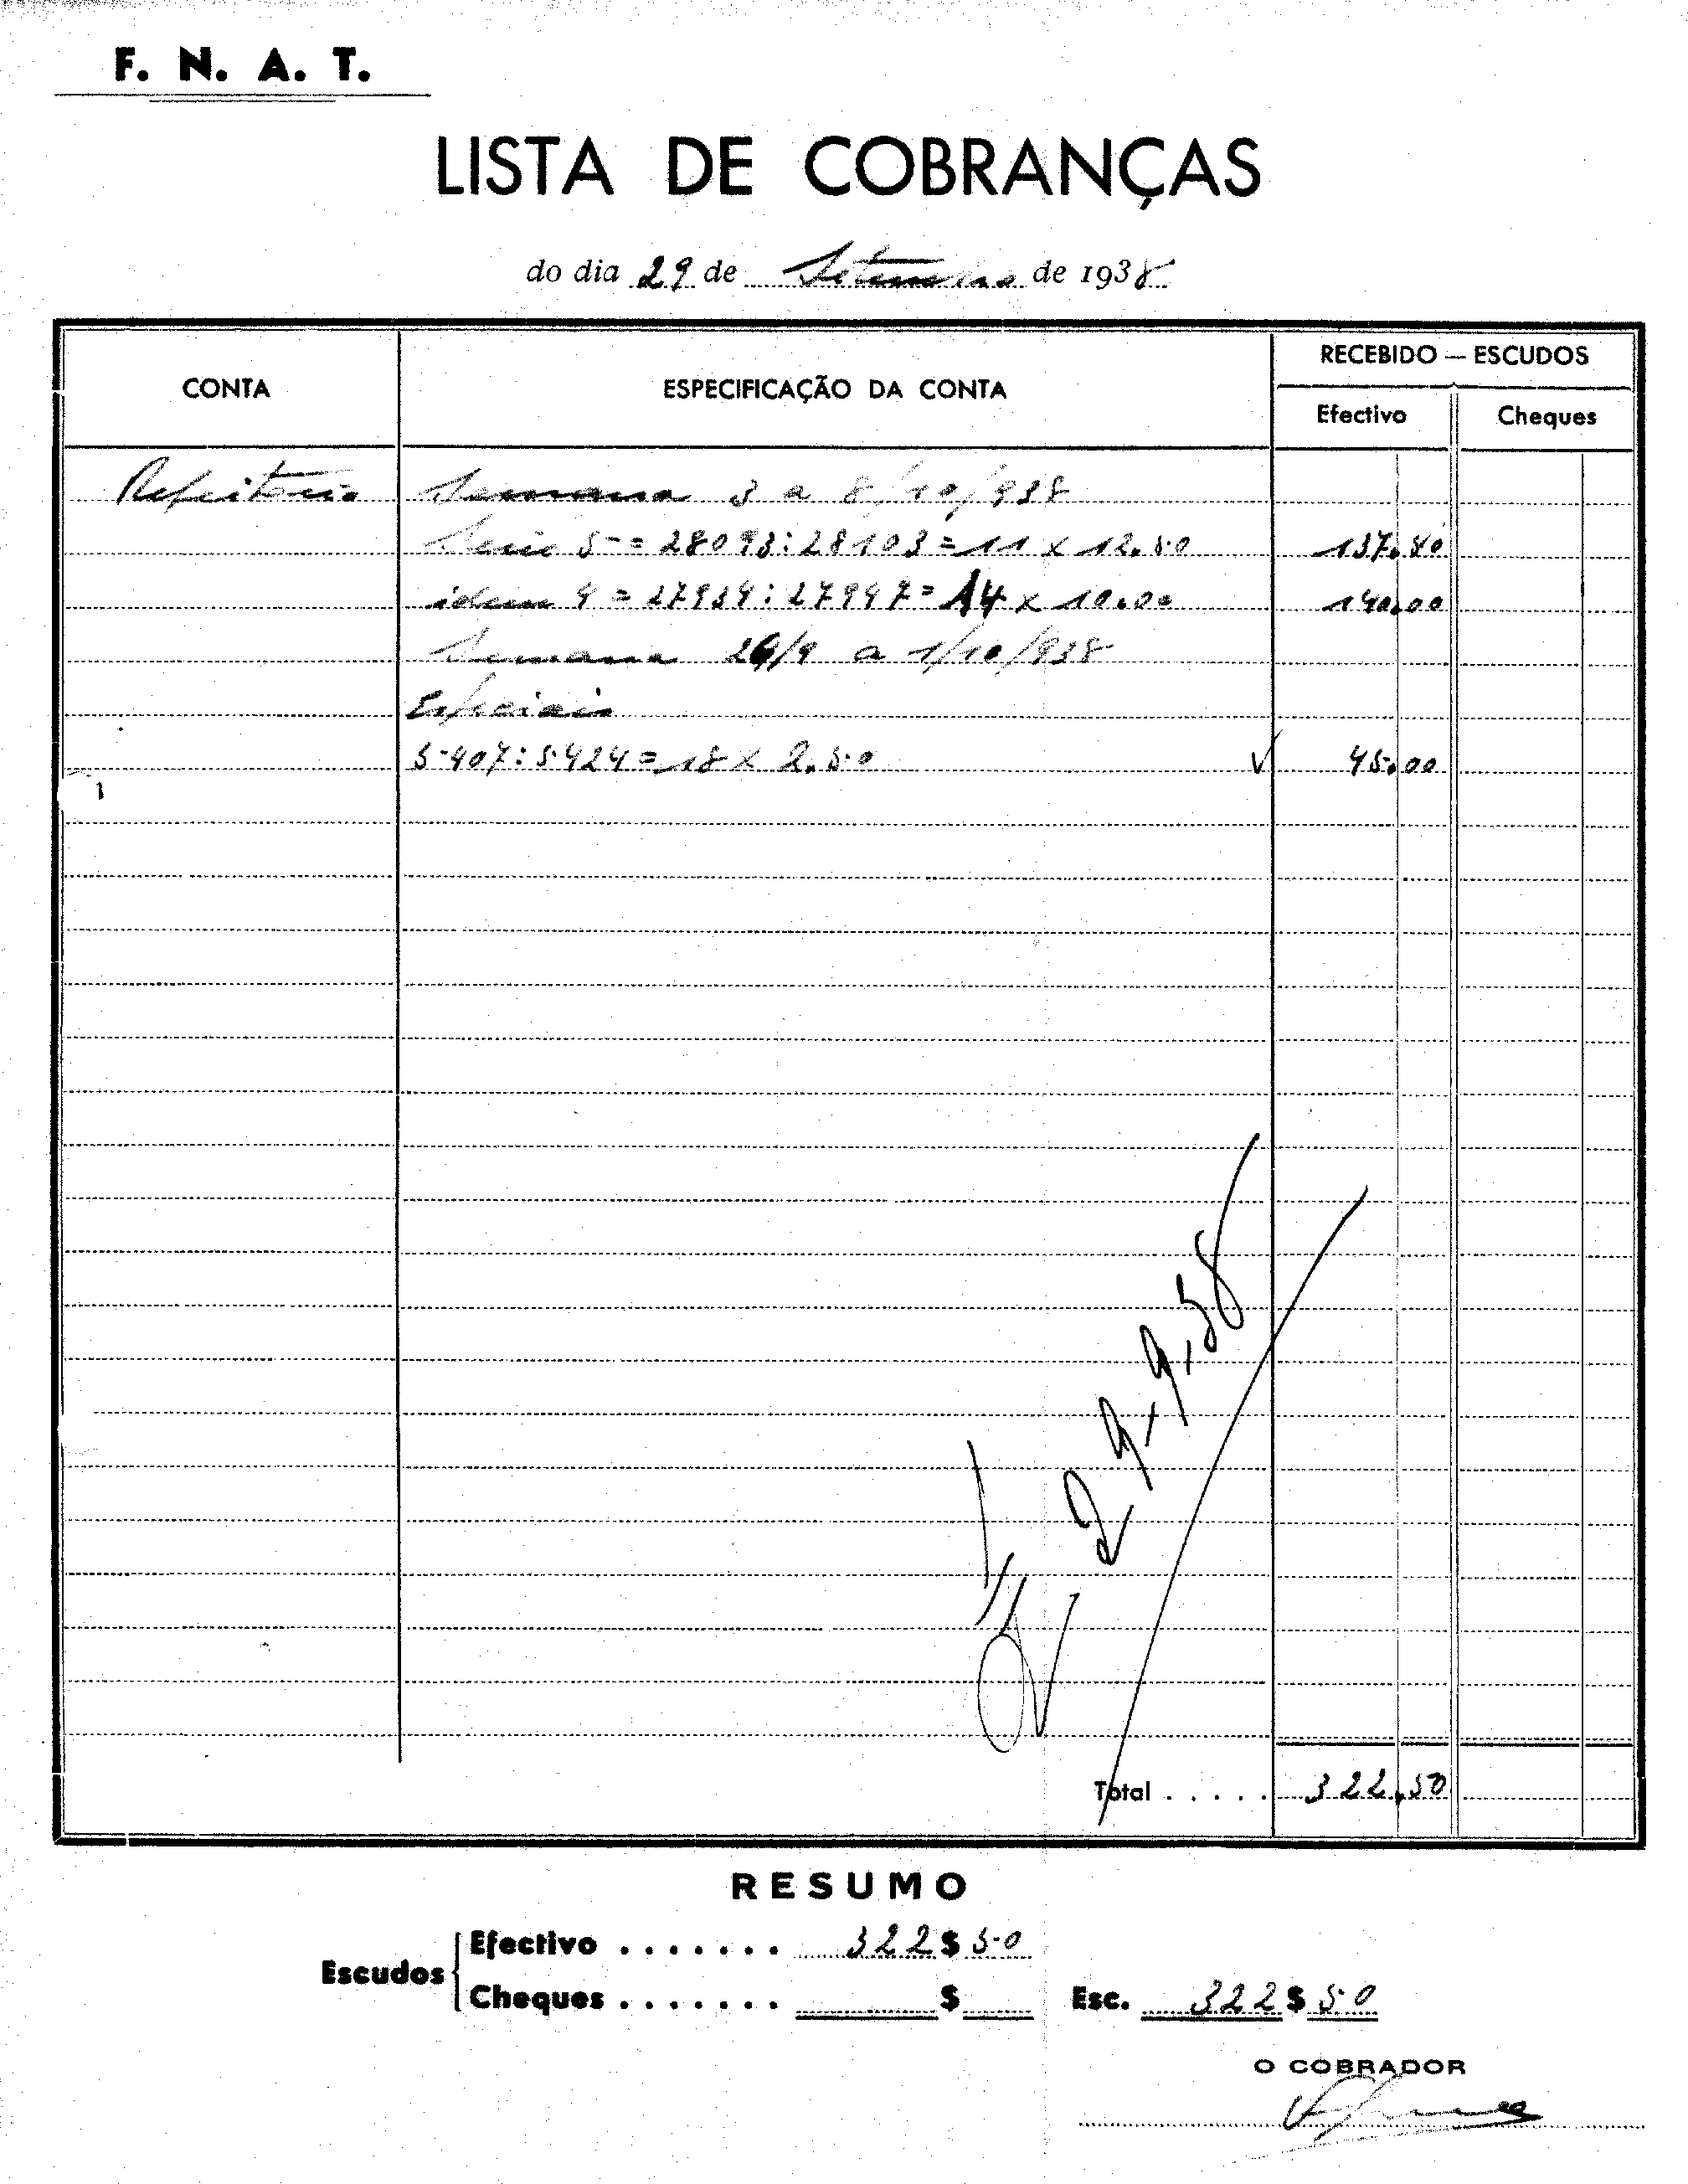 F. N. A. T.
LISTA DE COBRANÇAS
do dia 29 de Setembro de 1938
CONTA ESPECIFICAÇÃO DA CONTA RECEBIDO — ESCUDOS
Efectivo Cheques
Refeitorio Semana 3 a 8/10/938
Serie 5 = 28093:28103 = 11 x 12.50 137.50
idem 4 = 27934:27947 = 14 x 10.00 140.00
Semana 26/9 a 1/10/938
Especiais
5407:5424 = 18 x 2.50 45.00
29-9-38
Total . . . . . 322.50
RESUMO
Escudos Efectivo . . . . . . . 322$50
Cheques . . . . . . . $ Esc. 322$50
O COBRADOR